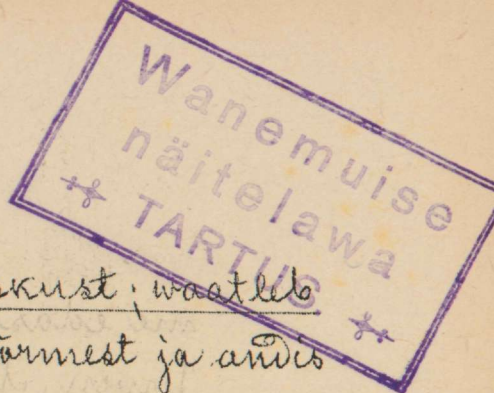 Wanemuise
näitelawa
TARTUS
waatleb
ja andis